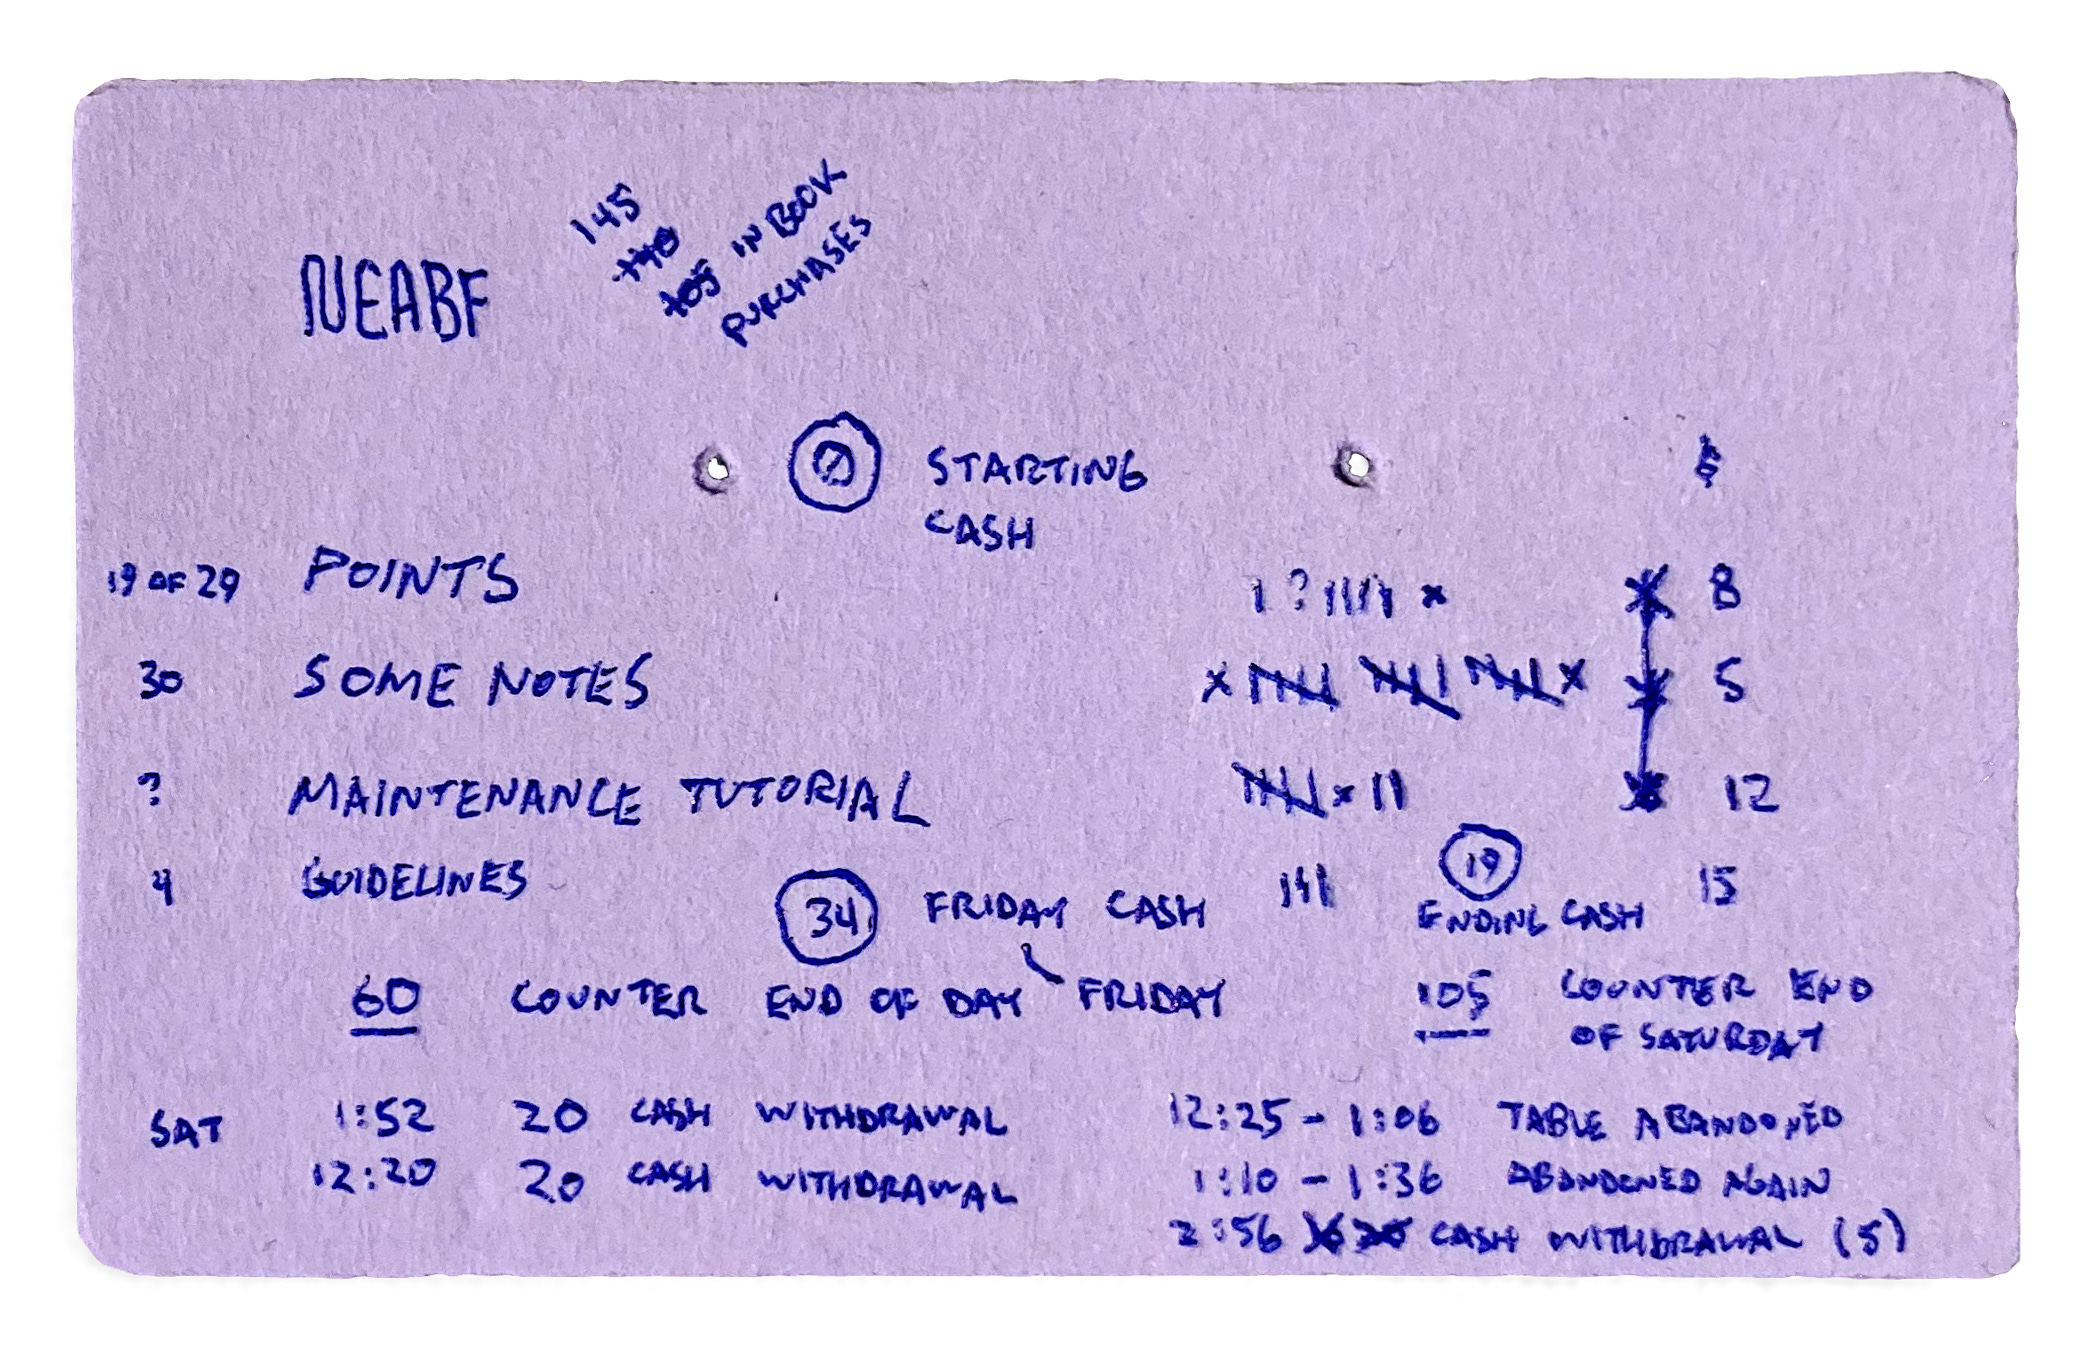 NEABF
145
140
105 IN BOOK
PURCHASES
0 STARTING
CASH
$
19 OF 29 POINTS | ? |||| x 8
30 SOME NOTES x |||| |||| |||| x 5
? MAINTENANCE TUTORIAL |||| x || 12
4 GUIDELINES ||| 15
34 FRIDAY CASH
19
ENDING CASH
60 COUNTER END OF DAY FRIDAY
105 COUNTER END
OF SATURDAY
SAT 1:52 20 CASH WITHDRAWAL
12:20 20 CASH WITHDRAWAL
12:25 - 1:06 TABLE ABANDONED
1:10 - 1:36 ABANDONED AGAIN
2:56 CASH WITHDRAWAL (5)